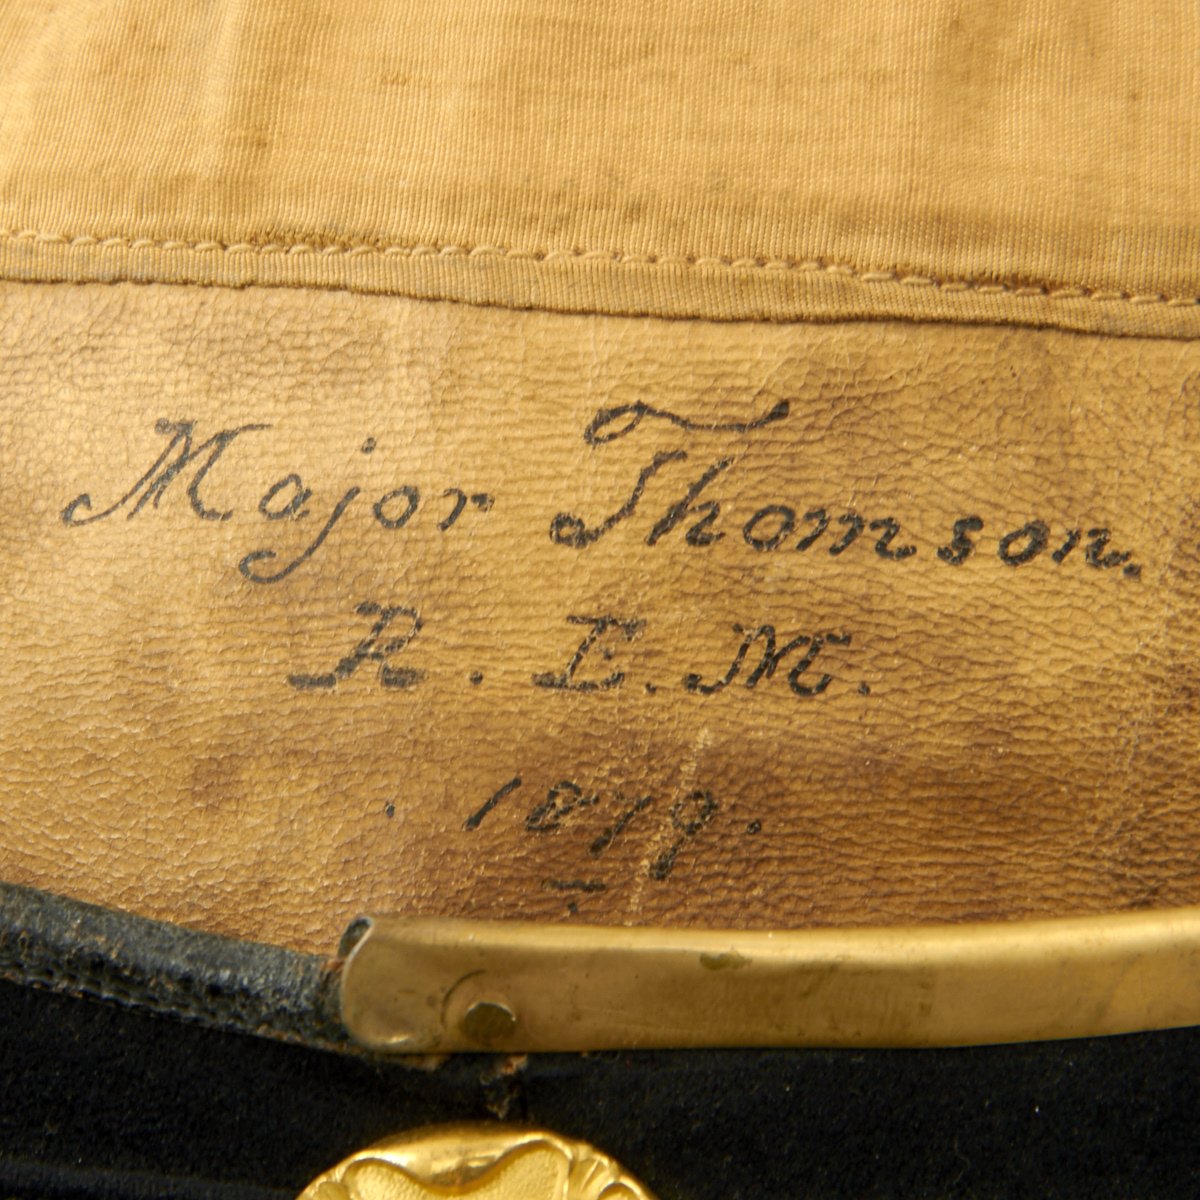 Major Thomson.
R. L. M.
1879.